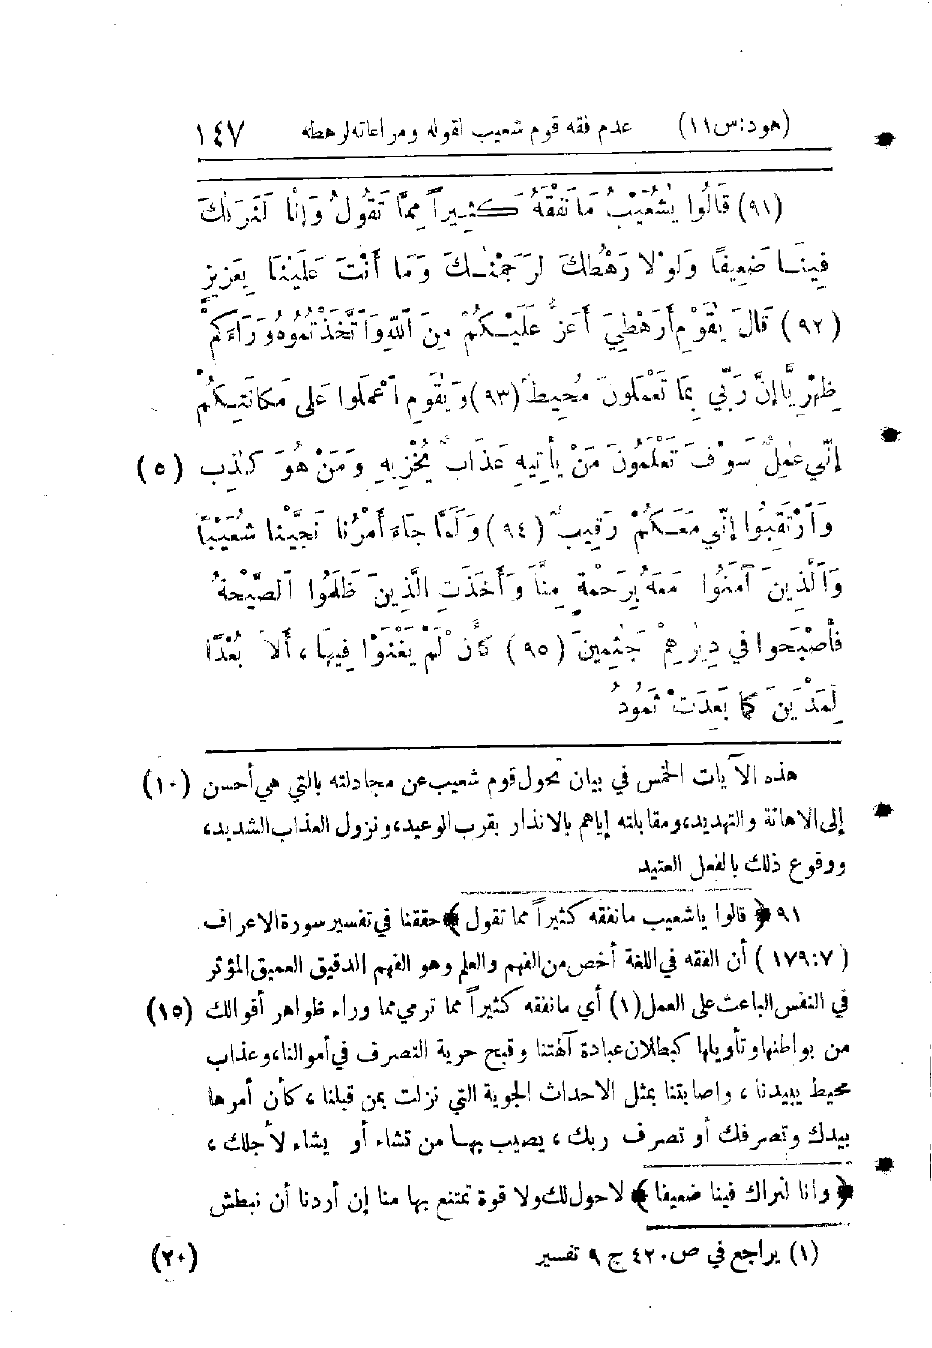 (هود:س١١) عدم فقه قوم شعيب لقوله ومراعاته لرهطه ١٤٧
(٩١) قَالُوا يٰشُعَيْبُ مَا نَفْقَهُ كَثِيراً مِمَّا تَقُولُ وَإِنَّا لَنَرَاكَ
فِينَا ضَعِيفًا وَلَوْلَا رَهْطُكَ لَرَجَمْنٰكَ وَمَا أَنْتَ عَلَيْنَا بِعَزِيزٍ
(٩٢) قَالَ يٰقَوْمِ أَرَهْطِي أَعَزُّ عَلَيْكُمْ مِنَ اللّٰهِ وَاتَّخَذْتُمُوهُ وَرَاءَكُمْ
ظِهْرِيًّا إِنَّ رَبِّي بِمَا تَعْمَلُونَ مُحِيطٌ (٩٣) وَيٰقَوْمِ اعْمَلُوا عَلَى مَكَانَتِكُمْ
إِنِّي عٰمِلٌ سَوْفَ تَعْلَمُونَ مَنْ يَأْتِيهِ عَذَابٌ يُخْزِيهِ وَمَنْ هُوَ كٰذِبٌ (٥)
وَارْتَقِبُوا إِنِّي مَعَكُمْ رَقِيبٌ (٩٤) وَلَمَّا جَاءَ أَمْرُنَا نَجَّيْنَا شُعَيْبًا
وَالَّذِينَ آمَنُوا مَعَهُ بِرَحْمَةٍ مِنَّا وَأَخَذَتِ الَّذِينَ ظَلَمُوا الصَّيْحَةُ
فَأَصْبَحُوا فِي دِيٰرِهِمْ جٰثِمِينَ (٩٥) كَأَنْ لَمْ يَغْنَوْا فِيهَا، أَلَا بُعْدًا
لِمَدْيَنَ كَمَا بَعِدَتْ ثَمُودُ
هذه الآيات الخمس في بيان تحول قوم شعيب عن مجادلته بالتي هي أحسن (١٠)
إلى الاهانة والتهديد، ومقابلته إياهم بالانذار بقرب الوعيد، ونزول العذاب الشديد،
ووقوع ذلك بالفعل العتيد
٩١ ﴿ قالوا ياشعيب مانفقه كثيراً مما تقول ﴾ حققنا في تفسير سورة الاعراف
( ١٧٩:٧ ) أن الفقه في اللغة أخص من الفهم والعلم وهو الفهم الدقيق العميق المؤثر
في النفس الباعث على العمل (١) أي مانفقه كثيراً مما ترمي مما وراء ظواهر أقوالك (١٥)
من بواطنها وتأويلها كبطلان عبادة آلهتنا وقبح حرية التصرف في أموالنا، وعذاب
محيط يبيدنا ، واصابتنا بمثل الاحداث الجوية التي نزلت بمن قبلنا ، كأن أمرها
بيدك وتصرفك أو تصرف ربك ، يصيب بهـا من تشاء أو يشاء لأجلك ،
﴿ وانا لنراك فينا ضعيفا ﴾ لاحول لك ولا قوة تمتنع بها منا إن أردنا أن نبطش
(١) يراجع في ص ٤٢٠ ج ٩ تفسير (٢٠)